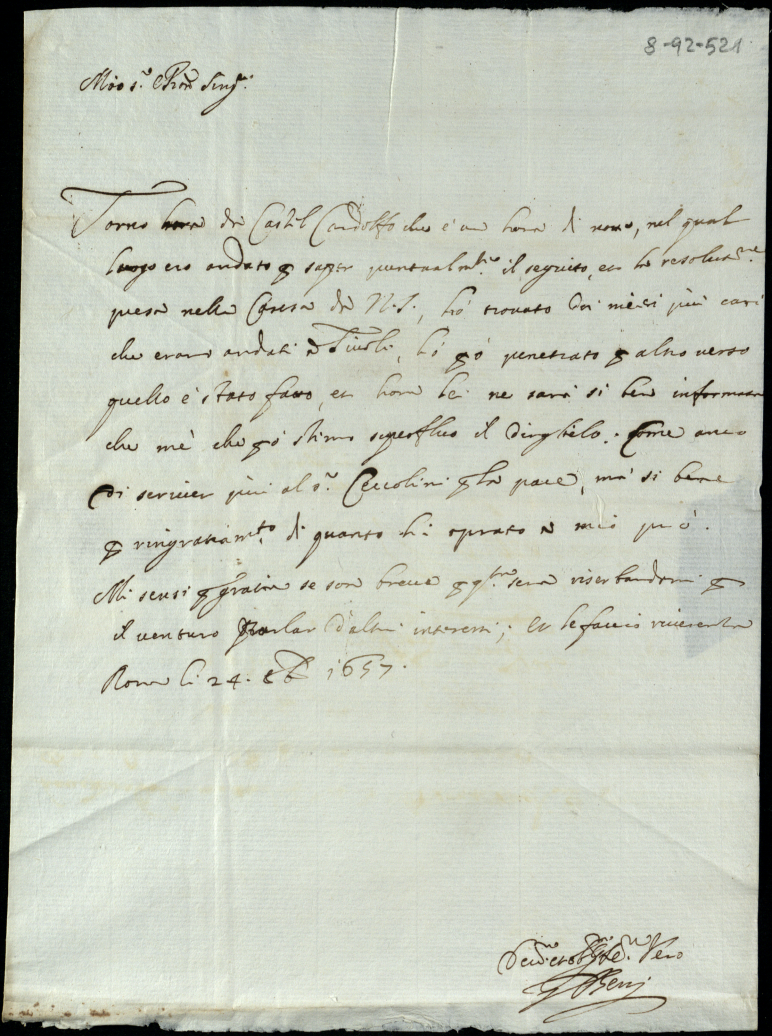 8-92-521
Mio s.r e Pron Sing.r
Torno hora da Castel Candolfo che è un hora di notte, nel qual
luogo ero andato p saper puntualm.te il seguito, et la resolut.ne
presa nella Causa di N.S., hò trovato doi miei più cari
che erano andati à Tivoli, hò pò penetrato p altro verso
quello è stato fatto, et hora lei ne sarà si ben informata
che mè che pò stimo superfluo il dirglielo. Come anco
di scriver più al s.r Ceccolini p la pace, mà si bene
p ringratiam.to di quanto hà oprato à mio prò.
Mi scusi p gratia se son breve p q.ta sera riserbandomi p
il venturo parlar d'altri interessi; et le faccio riverenza
Roma li 24. 1657.
Vero